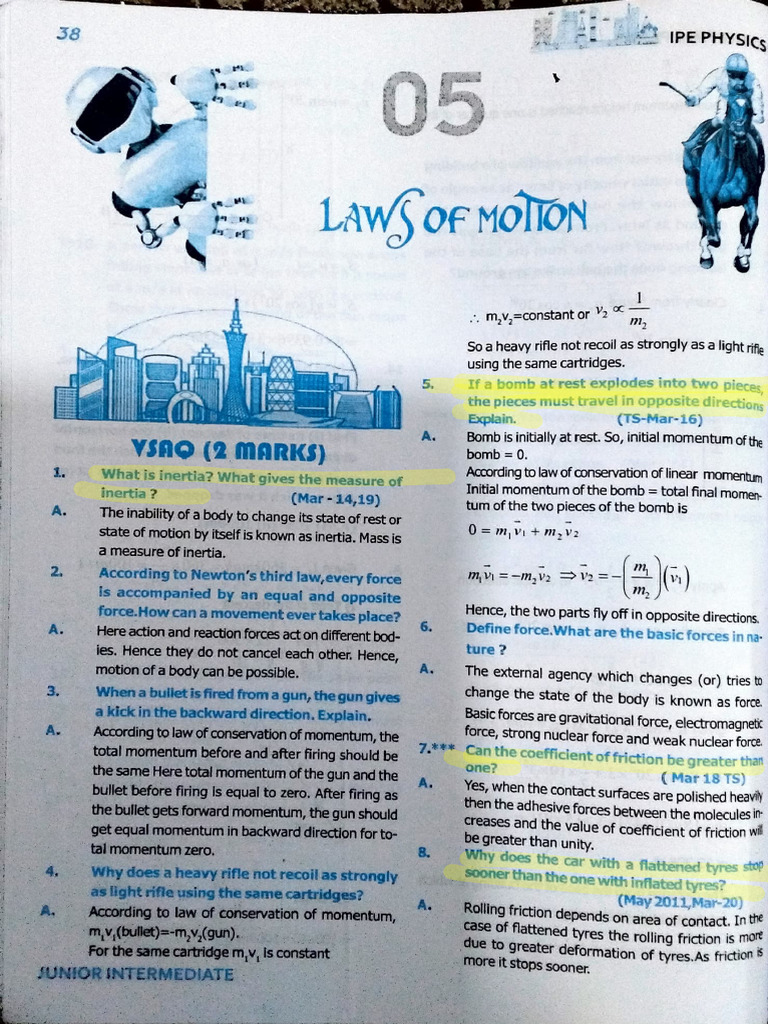 38
IPE PHYSICS
05
LAWS OF MOTION
VSAQ (2 MARKS)
1. What is inertia? What gives the measure of
inertia ? (Mar - 14,19)
A. The inability of a body to change its state of rest or
state of motion by itself is known as inertia. Mass is
a measure of inertia.
2. According to Newton's third law,every force
is accompanied by an equal and opposite
force.How can a movement ever takes place?
A. Here action and reaction forces act on different bod-
ies. Hence they do not cancel each other. Hence,
motion of a body can be possible.
3. When a bullet is fired from a gun, the gun gives
a kick in the backward direction. Explain.
A. According to law of conservation of momentum, the
total momentum before and after firing should be
the same Here total momentum of the gun and the
bullet before firing is equal to zero. After firing as
the bullet gets forward momentum, the gun should
get equal momentum in backward direction for to-
tal momentum zero.
4. Why does a heavy rifle not recoil as strongly
as light rifle using the same cartridges?
A. According to law of conservation of momentum,
m₁v₁(bullet)=-m₂v₂(gun).
For the same cartridge m₁v₁ is constant
JUNIOR INTERMEDIATE
∴ m₂v₂=constant or v₂ ∝ 1/m₂
So a heavy rifle not recoil as strongly as a light rifle
using the same cartridges.
5. If a bomb at rest explodes into two pieces,
the pieces must travel in opposite directions
Explain. (TS-Mar-16)
A. Bomb is initially at rest. So, initial momentum of the
bomb = 0.
According to law of conservation of linear momentum
Initial momentum of the bomb = total final momen-
tum of the two pieces of the bomb is
0 = m₁v⃗₁ + m₂v⃗₂
m₁v⃗₁ = -m₂v⃗₂ ⇒ v⃗₂ = -(m₁/m₂)(v⃗₁)
Hence, the two parts fly off in opposite directions.
6. Define force.What are the basic forces in na-
ture ?
A. The external agency which changes (or) tries to
change the state of the body is known as force.
Basic forces are gravitational force, electromagnetic
force, strong nuclear force and weak nuclear force.
7.*** Can the coefficient of friction be greater than
one? ( Mar 18 TS)
A. Yes, when the contact surfaces are polished heavily
then the adhesive forces between the molecules in-
creases and the value of coefficient of friction will
be greater than unity.
8. Why does the car with a flattened tyres stop
sooner than the one with inflated tyres?
(May 2011,Mar-20)
A. Rolling friction depends on area of contact. In the
case of flattened tyres the rolling friction is more
due to greater deformation of tyres.As friction is
more it stops sooner.